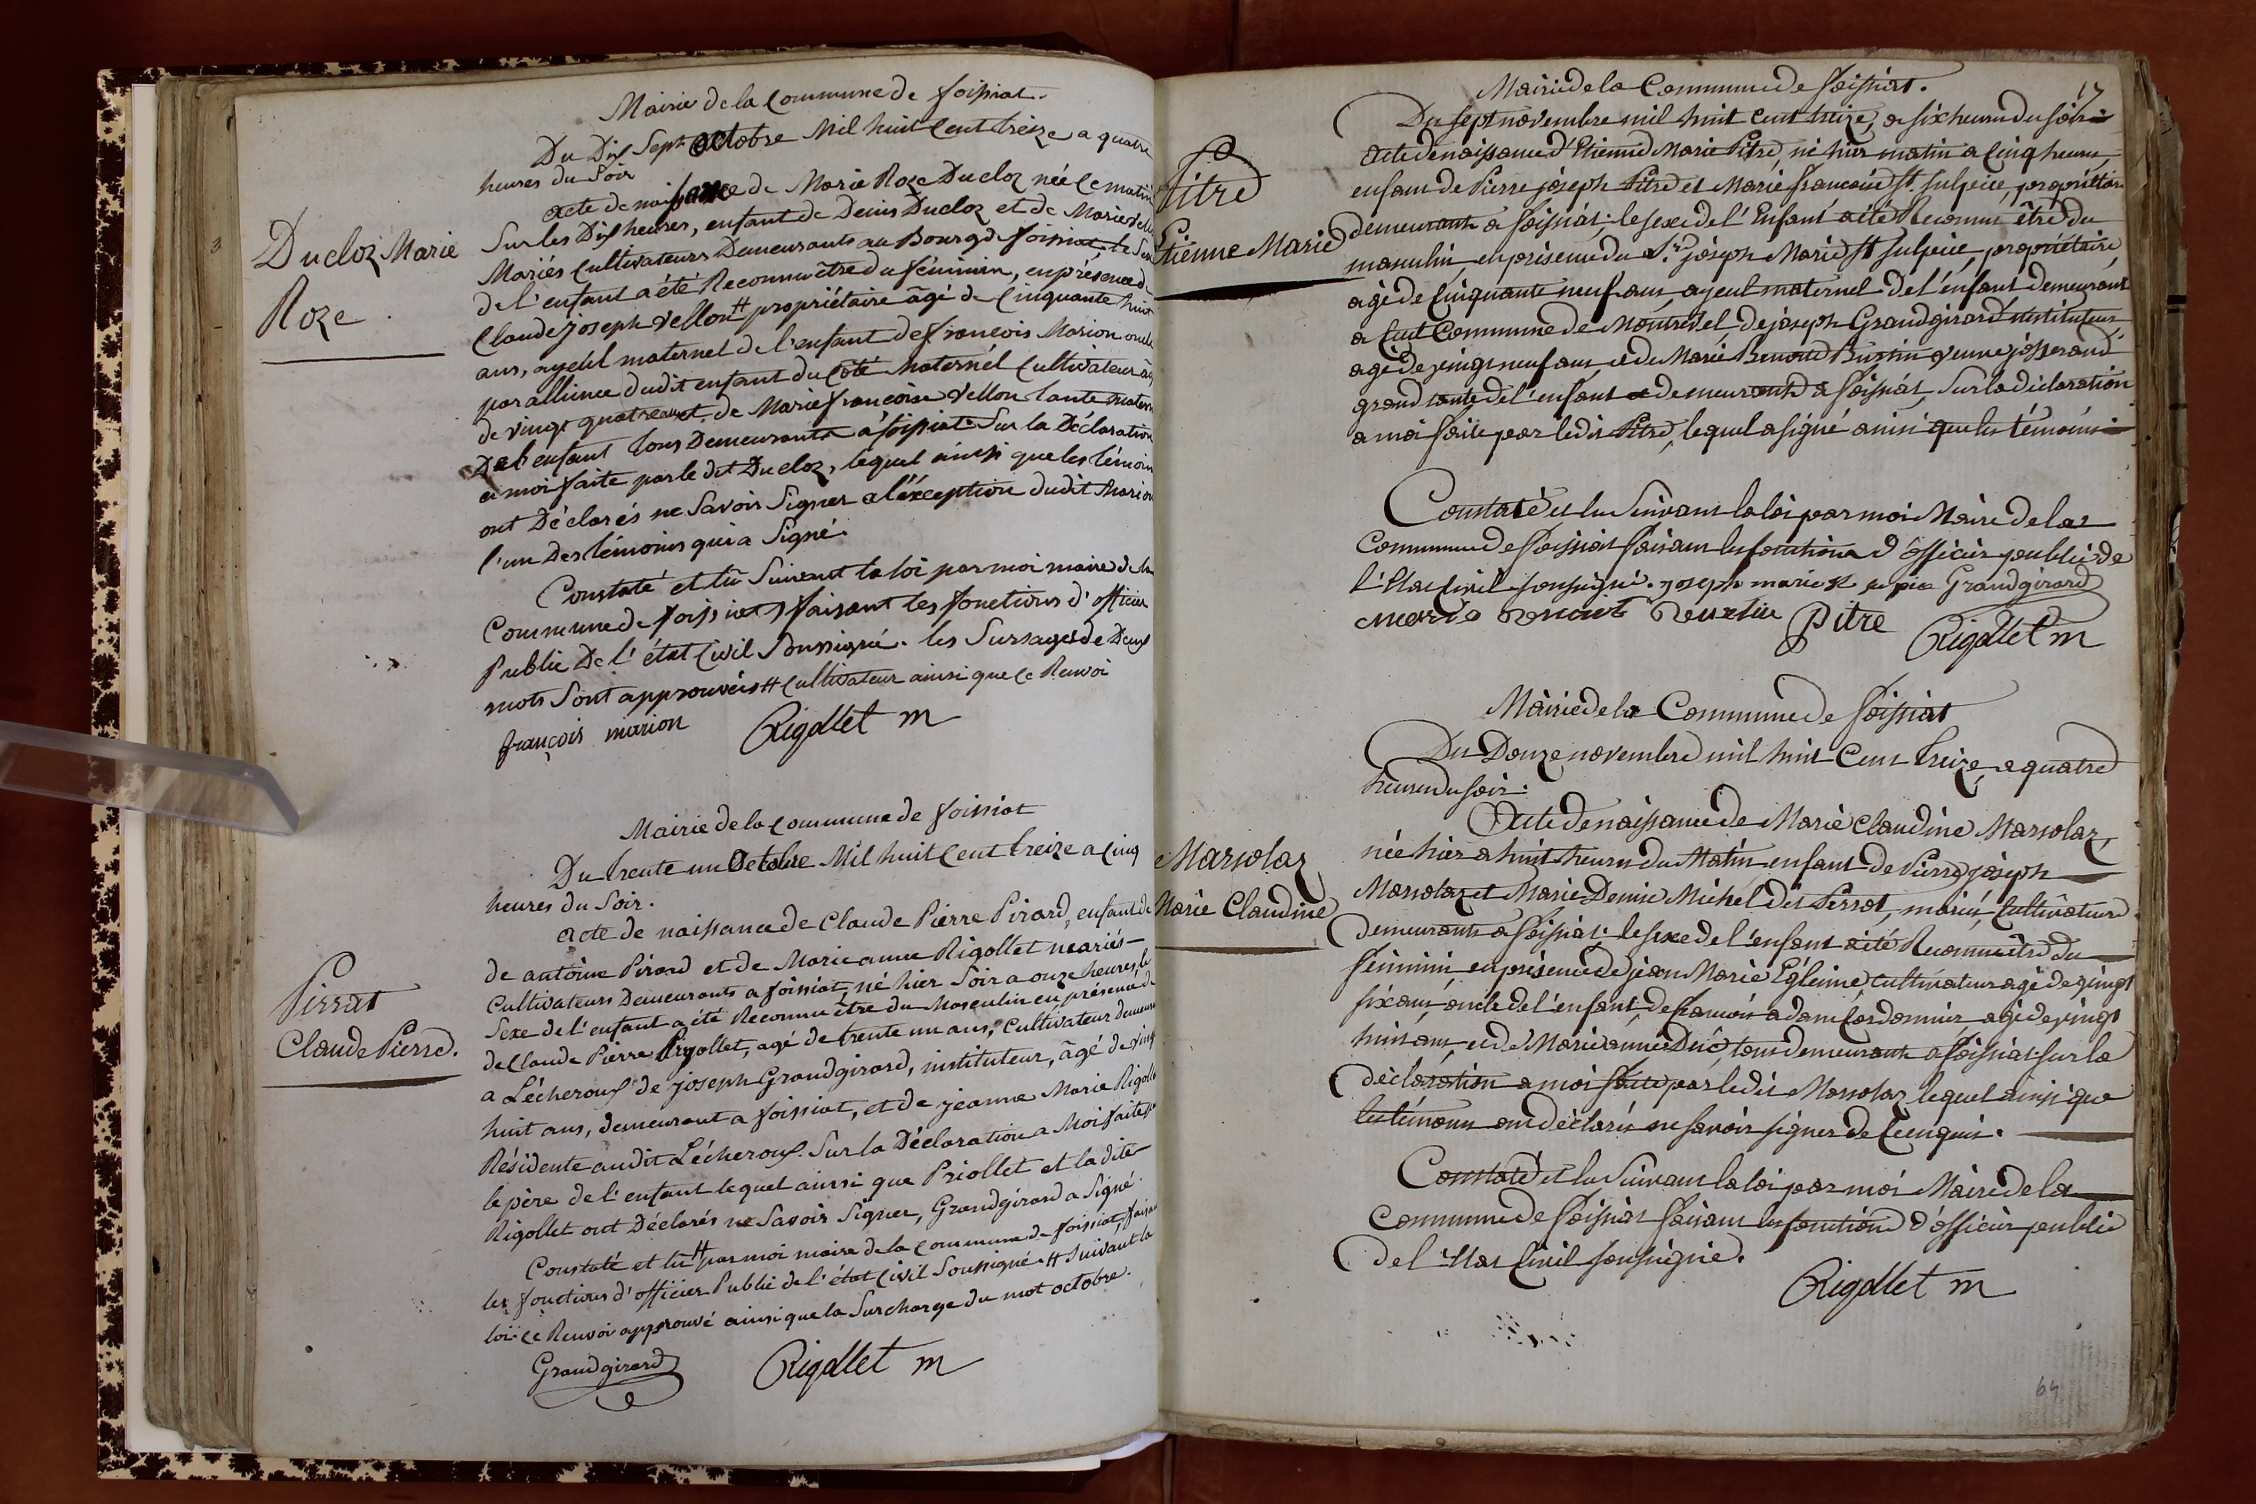 Mairie de la Commune de foissiat.
Du Dix Sept octobre Mil huit Cent treize a quatre
heures du Soir
acte de naissance de Marie Roze Ducloz née Ce matin
Sur les Dix heures, enfant de Denis Ducloz et de Marie
Mariés Cultivateurs Demeurants au Bourg de foissiat, le Sexe
de l'enfant a été Reconnu être du féminin, en présence de
Claude joseph Vellon # propriétaire âgé de Cinquante huit
ans, ayeul maternel de l'enfant de françois Marion oncle
par allience dudit enfant du Côté Maternel Cultivateur agé
de vingt quatre ans et de Marie françoise Vellon tante matern
De l'enfant tous Demeurants a foissiat. Sur la Déclaration
a moi faite par le dit Ducloz, lequel ainsi que les témoins
ont Déclarés ne Savoir Signer a l'éxception dudit Marion
l'un Des témoins qui a Signé.
Constaté et lû Suivant la loi par moi maire de la
Commune de foissiat faisant les fonctions d'officier
Public De l'état Civil Soussigné. les Surcharges de Deux
mots Sont approuvées # Cultivateur ainsi que Ce Renvoi
françois marion Rigollet m
Ducloz Marie
Roze
Mairie de la Commune de foissiat
Du trente un Octobre Mil huit Cent treize a Cinq
heures du Soir.
acte de naissance de Claude Pierre Pirard, enfant de
de antoine Pirard et de Marie anne Rigollet mariés
Cultivateurs Demeurants a foissiat, né hier Soir a onze heures, le
Sexe de l'enfant a été Reconnu être du Masculin en présence de
de Claude Pierre Rigollet, agé de trente un ans, Cultivateur demeurant
a Lécheroux de joseph Grandgirard, instituteur, âgé de vingt
huit ans, demeurant a foissiat, et de jeanne Marie Rigollet
Résidente audit Lécheroux. Sur la Déclaration a Moi faite par
le père de l'enfant lequel ainsi que Priollet et la dite
Rigollet ont Déclarés ne Savoir Signer, Grandgirard a Signé.
Constaté et lû # par moi maire de la Commune de foissiat, faisant
les fonctions d'officier Public de l'état Civil Soussigné # Suivant la
loi. Ce Renvoi approuvé ainsi que la Surcharge du mot octobre.
Grandgirard Rigollet m
Pirrat
Claude Pierre.
17
Mairie de la Commune de foissiat.
Du sept novembre mil huit Cent treize, a six heures du soir
Acte de naissance d'Etienne Marie Pitre, né hier matin a Cinq heures,
enfant de Pierre joseph Pitre et Marie françoise St. Sulpice, propriétaire
demeurants a foissiat; le sexe de l'Enfant a été Reconnu être du
masculin, en présence du Sr. joseph Marie St Sulpice, propriétaire,
agé de Cinquante neuf ans, ayeul maternel de l'enfant demeurant
a Cuet Commune de Montrevel, de joseph Grandgirard instituteur,
agé de vingt neuf ans, et de Marie Benoite Burtin veuve josserand
grand tante de l'enfant demeurants a foissiat, Sur la déclaration
a moi faite par ledit Pitre, lequel a signé ainsi que les témoins
Constaté et lu Suivant la loi par moi Maire de la
Commune de foissiat faisant les fonctions d'officier public de
l'Etat Civil soussigné. joseph marie st sulpice Grandgirard
marie Benoite Burtin Pitre Rigollet m
Pitre
Etienne Marie
Mairie de la Commune de foissiat
Du Douze novembre mil huit Cent treize, a quatre
heures du soir.
Acte de naissance de Marie Claudine Marsolaz,
née hier a huit heures du Matin, enfant de Pierre joseph
Marsolaz et Marie Denise Michel dit Perrot, mariés, Cultivateurs
demeurants a foissiat; le sexe de l'enfant a été Reconnu être du
féminin, en présence de jean Marie Egleine, Cultivateur agé de vingt
six ans, oncle de l'enfant, de françois adam Cordonnier, agé de vingt
huit ans, et de Marie anne Duc, tous demeurants a foissiat. Sur la
déclaration a moi faite par ledit Marsolaz lequel ainsi que
les témoins ont déclarés ne savoir signer de Ce enquis.
Constaté et lu Suivant la loi par moi Maire de la
Commune de foissiat faisant les fonctions d'officier public
de l'Etat Civil soussigné.
Rigollet m
Marsolaz
Marie Claudine
64